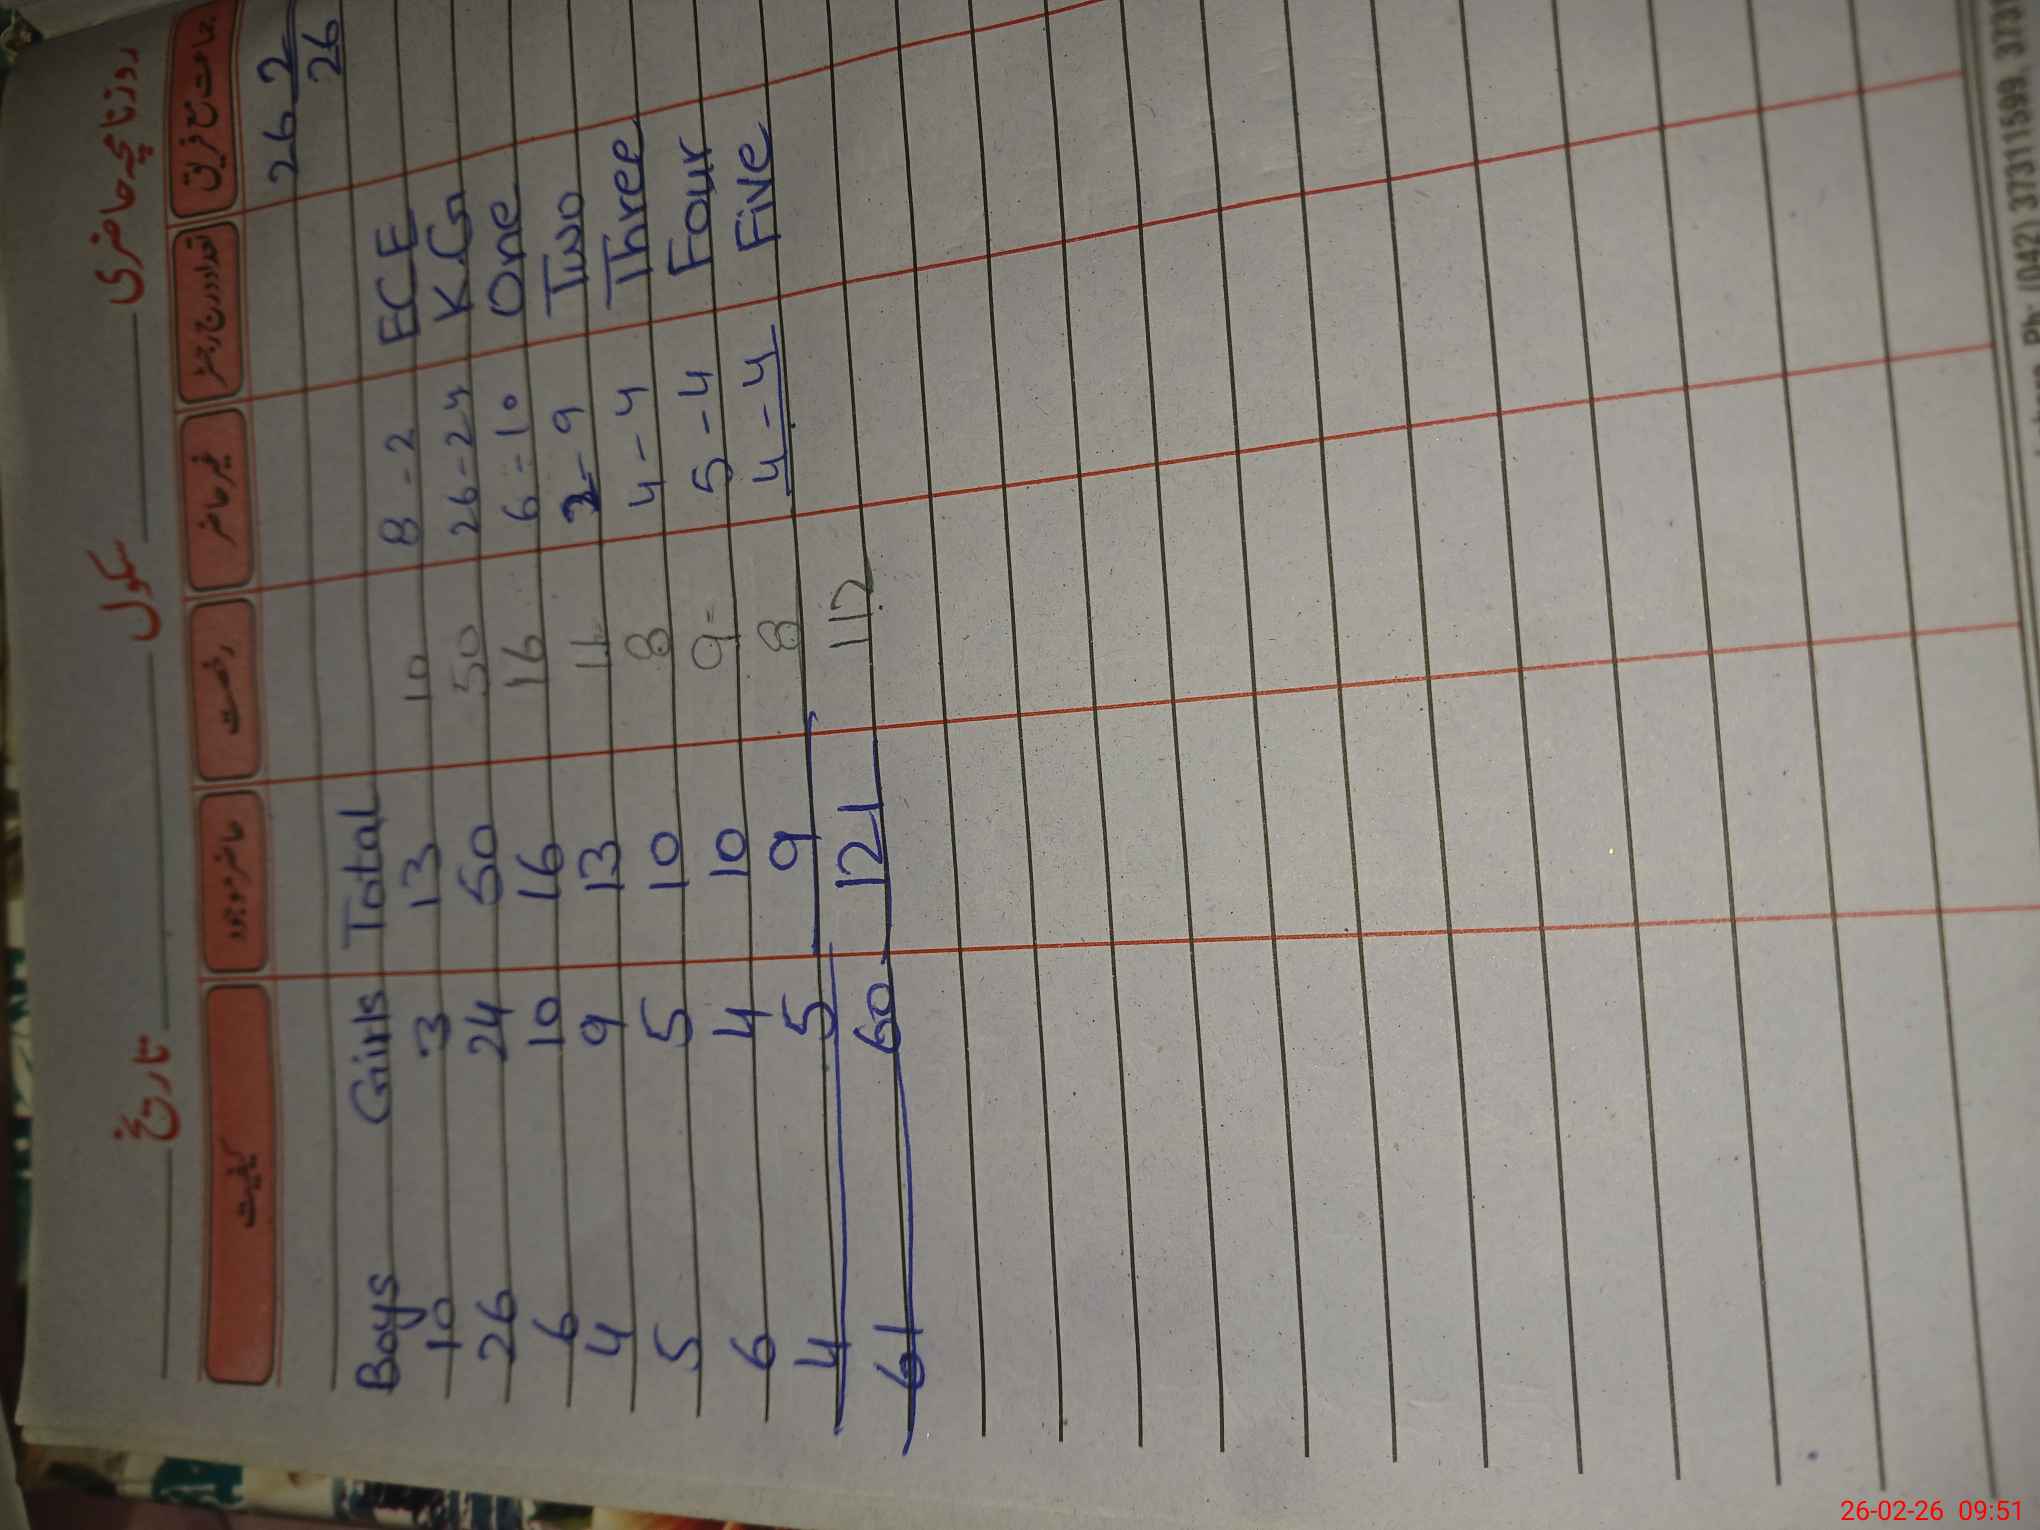 تاریخ سکول روزنامچہ حاضری
کیفیت حاضر موجود رخصت غیر حاضر تعداد درج رجسٹر جماعت مع فریق
26 2/26
Boys Girls Total
10 3 13 10 8-2 ECE
26 24 50 50 26-24 K.G
6 10 16 16 6-10 One
4 9 13 11 2-9 Two
5 5 10 8 4-4 Three
6 4 10 9 5-4 Four
4 5 9 8 4-4 Five
61 60 121 112
(042) 37311599, 3731
26-02-26 09:51